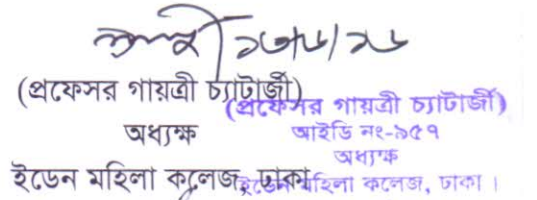 (প্রফেসর গায়ত্রী চ্যাটার্জী)
অধ্যক্ষ
ইডেন মহিলা কলেজ, ঢাকা
(প্রফেসর গায়ত্রী চ্যাটার্জী)
আইডি নং-৯৫৭
অধ্যক্ষ
ইডেন মহিলা কলেজ, ঢাকা ।